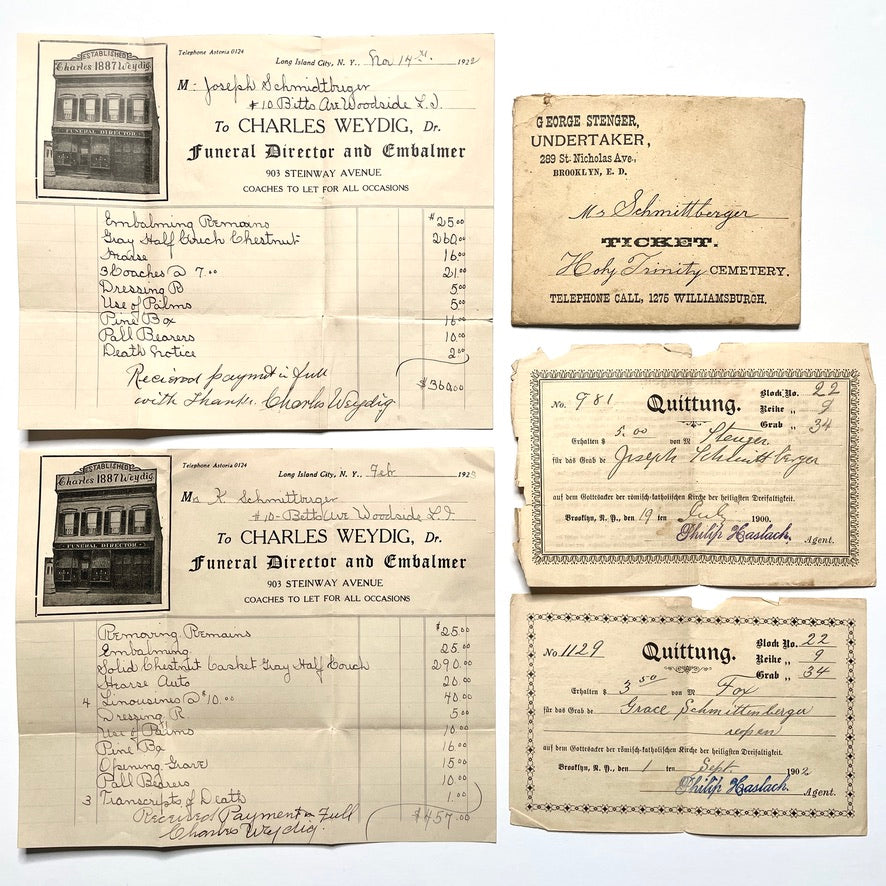 ESTABLISHED
Charles 1887 Weydig.
FUNERAL DIRECTOR
Telephone Astoria 0124
Long Island City, N. Y., Nov 14th 1922
M- Joseph Schmidtbuger
#10 Betts Ave Woodside L. I.
To CHARLES WEYDIG, Dr.
Funeral Director and Embalmer
903 STEINWAY AVENUE
COACHES TO LET FOR ALL OCCASIONS
Embalming Remains $25.00
Gray Half Couch Chestnut 260.00
16.00
3 Coaches @ 7.00 21.00
Dressing R 5.00
Use of Palms 5.00
Pine Box 16.00
Pall Bearers 10.00
Death Notice 2.00
Recieved payment in full $360.00
with thanks. Charles Weydig
ESTABLISHED
Charles 1887 Weydig.
FUNERAL DIRECTOR
Telephone Astoria 0124
Long Island City, N. Y., Feb 192
Mr K. Schmittburger
#10- Betts Ave Woodside L. I.
To CHARLES WEYDIG, Dr.
Funeral Director and Embalmer
903 STEINWAY AVENUE
COACHES TO LET FOR ALL OCCASIONS
Removing Remains $25.00
Embalming 25.00
Solid Chestnut Casket Gray Half Couch 290.00
Hearse Auto 20.00
4 Limousines @ $10.00 40.00
Dressing R 5.00
Use of Palms 10.00
Pine Bx 16.00
Opening Grave 15.00
Pall Bearers 10.00
3 Transcripts of Death 1.00
Received Payment in Full
Charles Weydig. $457.00
GEORGE STENGER,
UNDERTAKER,
289 St. Nicholas Ave.,
BROOKLYN, E. D.
Mr Schmittberger
TICKET.
Holy Trinity CEMETERY.
TELEPHONE CALL, 1275 WILLIAMSBURGH.
No. 981 Quittung. Block No. 22
Reihe „ 9
Grab „ 34
Erhalten $ 5.00 von M Stenger
für das Grab de Joseph Schmittberger
auf dem Gottesacker der römisch-katholischen Kirche der heiligsten Dreifaltigkeit.
Brooklyn, N. Y., den 19 ten July 1900.
Philip Haslach. Agent.
No. 1129 Quittung. Block No. 22
Reihe „ 9
Grab „ 34
Erhalten $ 3.50 von M Fox
für das Grab de Grace Schmittenberger
auf dem Gottesacker der römisch-katholischen Kirche der heiligsten Dreifaltigkeit.
Brooklyn, N. Y., den 1 ten Sept. 1902
Philip Haslach. Agent.